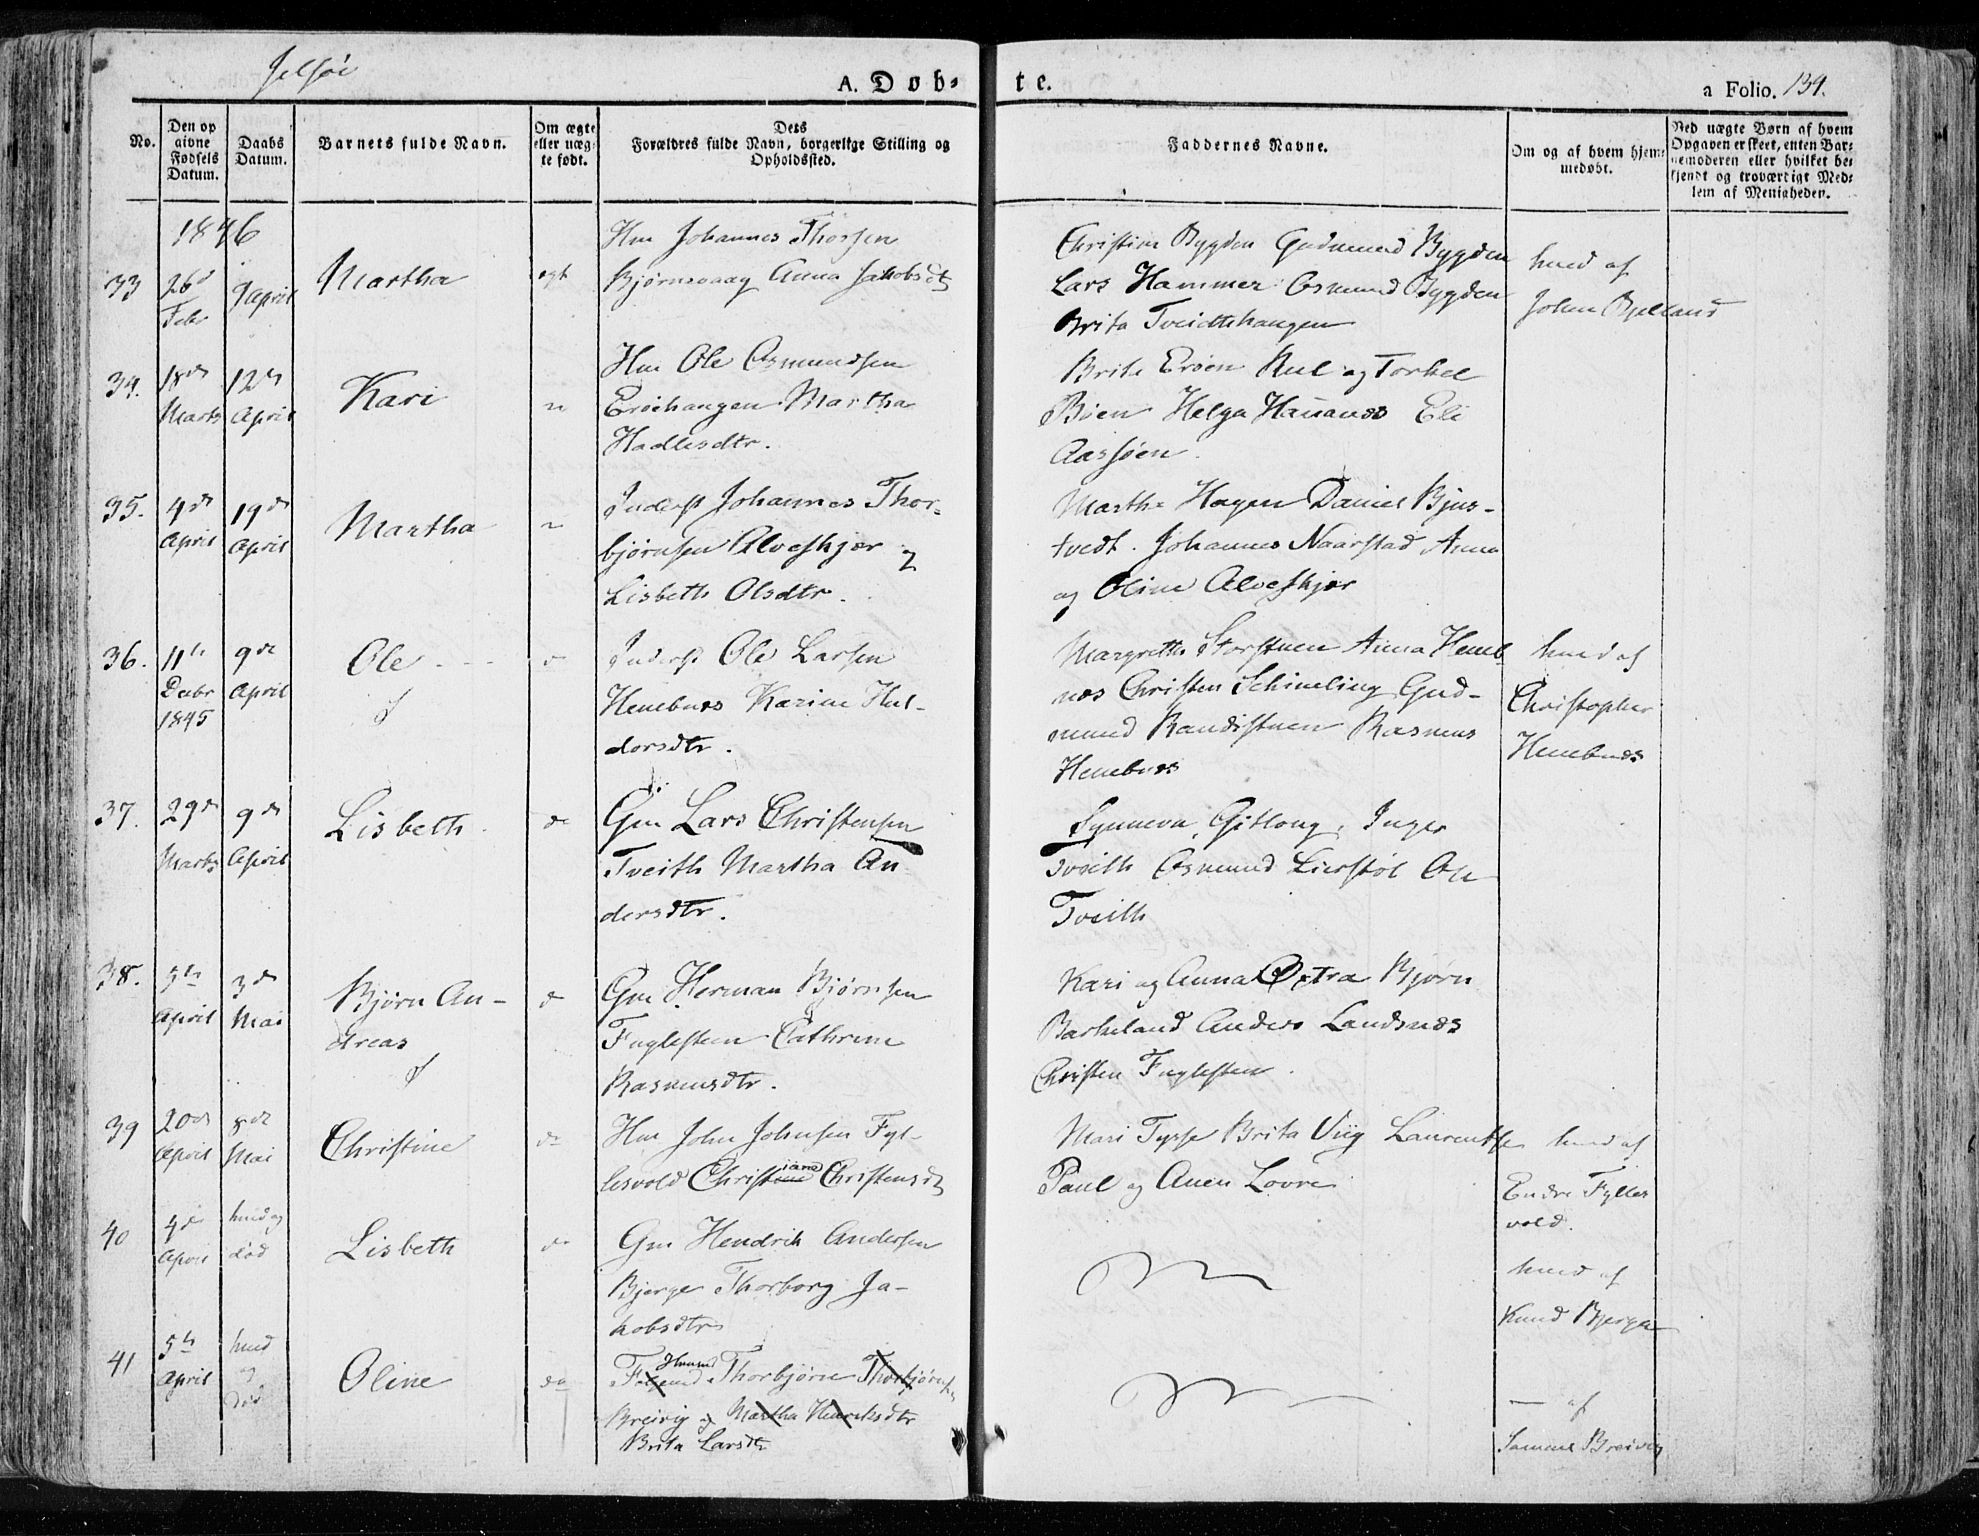 Jelsøe
A. Døb-
te.
a Folio. 134.
No.
Den op
givne
Fødsels
Datum.
Daabs
Datum.
Barnets fulde Navn.
Om ægte
eller uæg-
te født.
Dets
Forældres fulde Navn, borgerlige Stilling og
Opholdssted.
Faddernes Navne.
Om og af hvem hjem-
medøbt.
Ved uægte Børn af hvem
Opgaven er skeet, enten Bar-
nemoderen eller hvilket be-
kjendt og troværdigt Med-
lem af Menigheden.
1846
33 26d Febr 9 April Martha egt
Hm Johannes Thorsen
Bjørnsvaag Anna Jakobsdt
Christine Bygden Gudmund Bygden
Lars Hammer Osmund Bygden
Brita Tveidtshaugen
hmd af
John Bjelland
34. 18de Marts 12te April Kari
Hm Ole Osmundsen
Erøehaugen Martha
Hadlesdtr.
Brita Erøen Rul og Torkel
Bøen Helga Hauanes Eli
Aassøen.
35. 4de April 19de April Martha
Inderst Johannes Thor-
bjørnsen Alveskjær og
Lisbeth Olsdtr.
Martha Hagen Daniel Bjus-
tvedt. Johannes Naarstad Anna
og Oline Alveskjær
36. 11te Decbr 1845 9de April Ole
Inderst Ole Larsen
Henebnes Karine Hal-
dorsdtr.
Margrethe Storstuen Anna Heneb
nes Christen Schimeling Gud-
mund Randistuen Rasmus
Henebnes
hmd af
Christopher
Henebnes
37. 29de Marts 9de April Lisbeth do
Gm Lars Christensen
Tveith Martha An-
dersdtr.
Synneva Gitlong, Inger
Tveith Osmund Lierstøl Ole
Tveith
38. 5te April 3de Mai Bjørn An-
dreas do
Gm Herman Bjørnsen
Fuglesteen Cathrine
Rasmusdtr.
Kari og Anna Østra Bjørn
Barkeland Anders Landsnes
Christen Fuglesten.
39 20de April 8de Mai Christine do
Hm John Johnsen Fyl-
lesvold Christiane Christensdt
Mari Tysse Brita Viig Laurentse
Paul og Anen Lovre
hmd af
Endre Fylles
vold.
40 4de April hmd og død Lisbeth do
Gm Hendrik Andersen
Bjerge Thorborg Ja-
kobsdtr
hmd af
Knud Bjerga
41 5te April hmd og død Oline do
Husmd Thorbjørn Thorbjørnsen
Breivig og Martha Henriksdtr
Brita Larsdtr
— af
Samuel Breivig